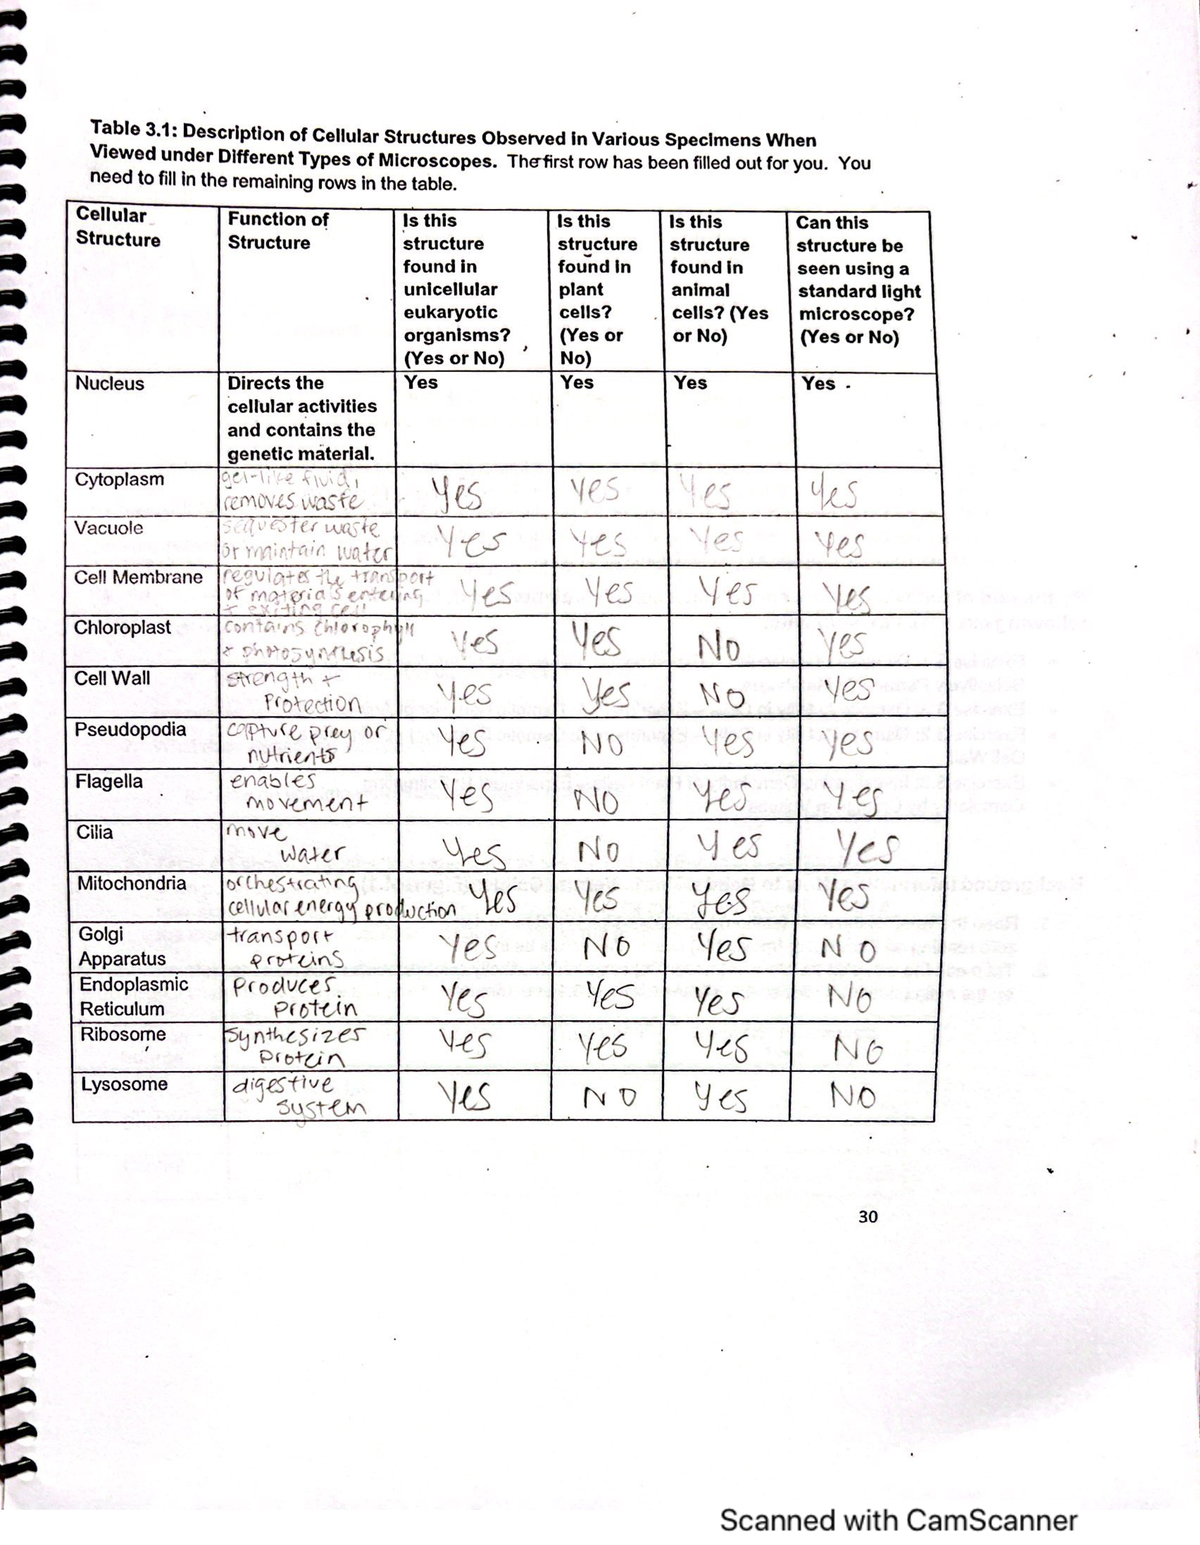 Table 3.1: Description of Cellular Structures Observed in Various Specimens When
Viewed under Different Types of Microscopes. The first row has been filled out for you. You
need to fill in the remaining rows in the table.
Cellular Structure
Function of Structure
Is this structure found in unicellular eukaryotic organisms? (Yes or No)
Is this structure found in plant cells? (Yes or No)
Is this structure found in animal cells? (Yes or No)
Can this structure be seen using a standard light microscope? (Yes or No)
Nucleus
Directs the
cellular activities
and contains the
genetic material.
Yes Yes Yes Yes
Cytoplasm
gel-like fluid,
removes waste
Yes Yes Yes Yes
Vacuole
sequester waste
or maintain water
Yes Yes Yes Yes
Cell Membrane
regulates the transport
of materials entering
+ exiting cell
Yes Yes Yes Yes
Chloroplast
contains chlorophyll
+ photosynthesis
Yes Yes No Yes
Cell Wall
strength +
Protection
Yes Yes No Yes
Pseudopodia
capture prey or
nutrients
Yes No Yes Yes
Flagella
enables
movement
Yes No Yes Yes
Cilia
move
water
Yes No Yes Yes
Mitochondria
orchestrating
cellular energy production
Yes Yes Yes Yes
Golgi
Apparatus
transport
proteins
Yes No Yes No
Endoplasmic
Reticulum
Produces
Protein
Yes Yes Yes No
Ribosome
Synthesizes
Protein
Yes Yes Yes No
Lysosome
digestive
system
Yes No Yes No
30
Scanned with CamScanner